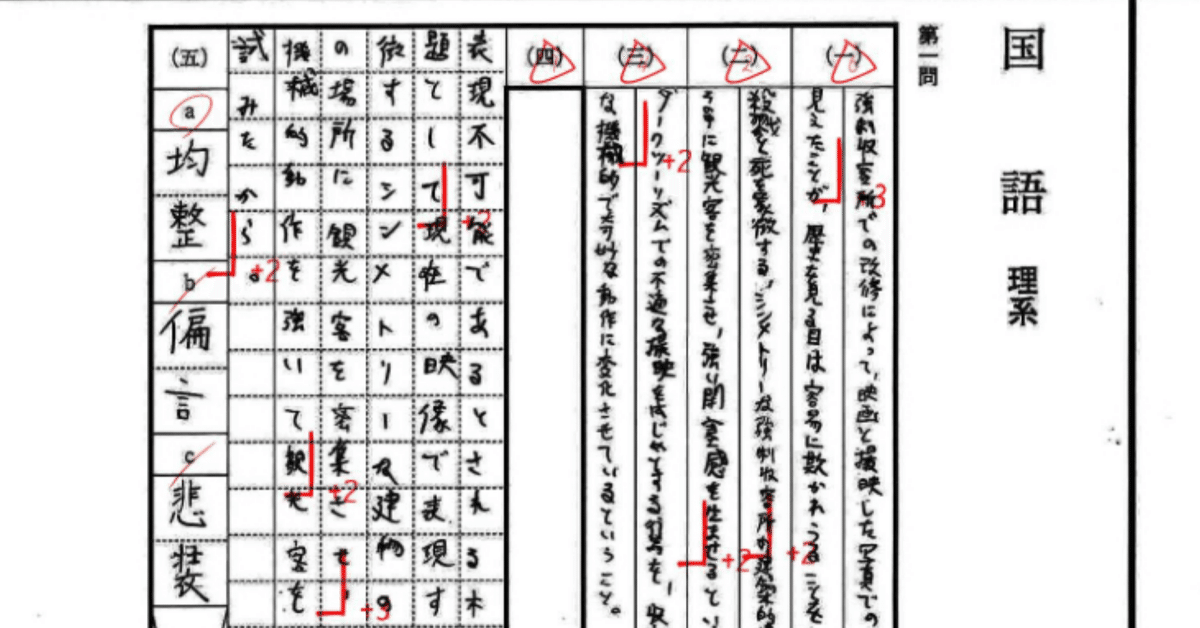 国語 理系
第一問
(一)
強制収容所での改修によって、映画と撮映した写真での
見えたことが、歴史を見る目は容易に欺かれうることを
+3
(二)
殺戮と死を象徴する、シンメトリーな強制収容所の建築的
+2
に観光客を密集させ、強い閉塞感を生ませるとい
+2
(三)
ダークツーリズムでの不適な撮映を
+2
な機械的で奇妙な動作に変化させているということ。
(四)
表現不可能であるとされる
題として現在の映像でま現す
徴するシンメトリーな建物の
の場所に観光客を密集させ、
+3
機械的動作を強いて観光客を
+2
試みたから。
+2
(五)
a
均整
b
偏言
c
悲壮